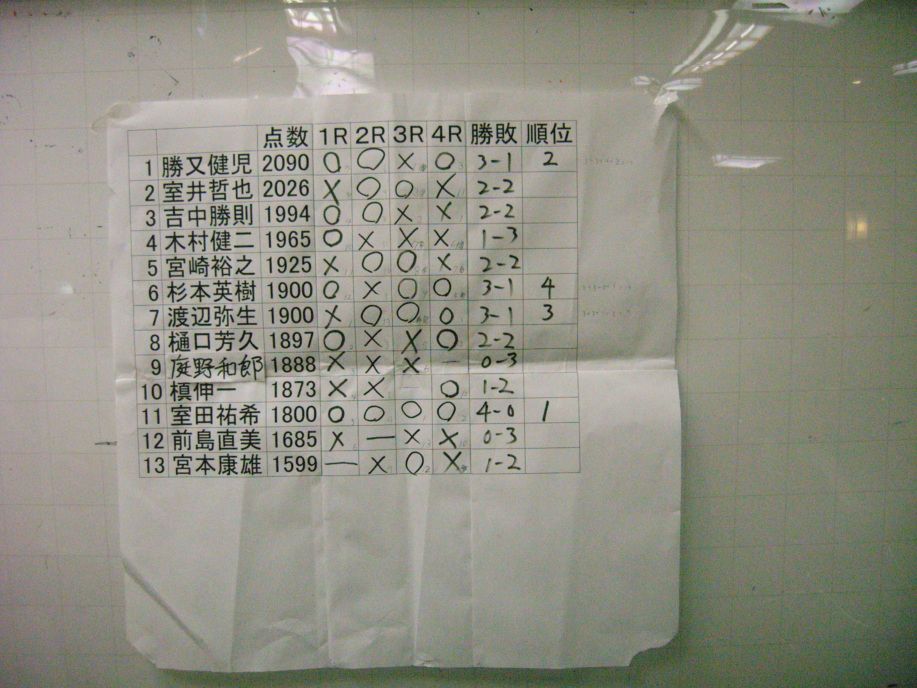 点数 1R 2R 3R 4R 勝敗 順位
1 勝又健児 2090 ○ ○ × ○ 3-1 2
2 室井哲也 2026 × ○ ○ × 2-2
3 吉中勝則 1994 ○ ○ × × 2-2
4 木村健二 1965 ○ × × × 1-3
5 宮崎裕之 1925 × ○ ○ × 2-2
6 杉本英樹 1900 ○ × ○ ○ 3-1 4
7 渡辺弥生 1900 × ○ ○ ○ 3-1 3
8 樋口芳久 1897 ○ × × ○ 2-2
9 庭野和郎 1888 × × × — 0-3
10 槙伸一 1873 × × — ○ 1-2
11 室田祐希 1800 ○ ○ ○ ○ 4-0 1
12 前島直美 1685 × — × × 0-3
13 宮本康雄 1599 — × ○ × 1-2